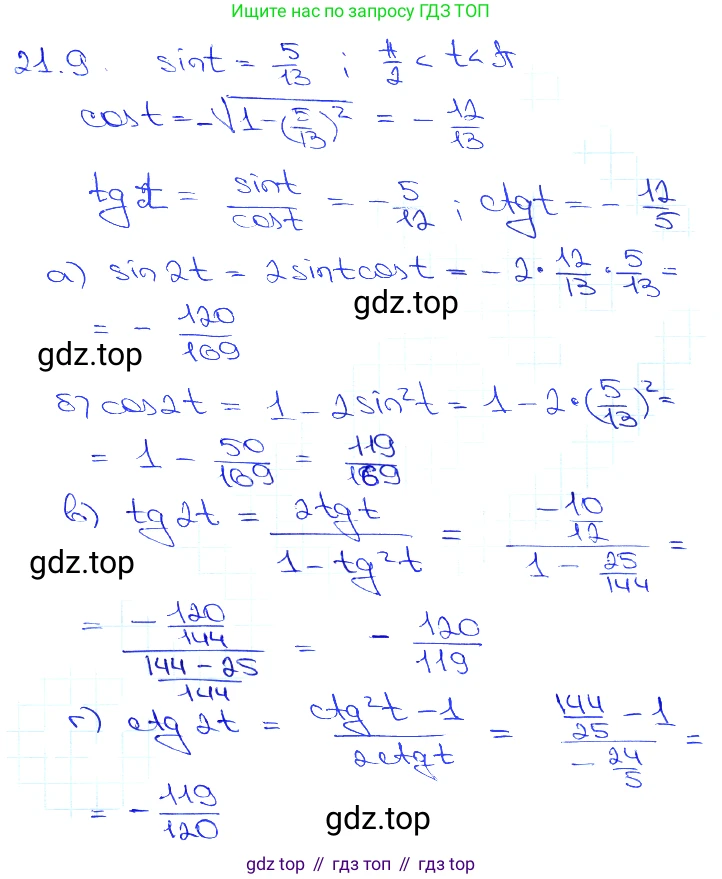 Ищите нас по запросу ГДЗ ТОП
21.9. sint = 5/13 ; π/2 < t < π
cost = -√(1-(5/13)²) = - 12/13
tgt = sint/cost = - 5/12 ; ctgt = - 12/5
а) sin2t = 2sintcost = - 2 · 12/13 · 5/13 =
gdz.top
= - 120/169
gdz.top
б) cos2t = 1 - 2sin²t = 1 - 2 · (5/13)² =
= 1 - 50/169 = 119/169
в) tg2t = 2tgt/(1 - tg²t) = (-10/12)/(1 - 25/144) =
gdz.top
= (-120/144)/((144 - 25)/144) = - 120/119
г) ctg2t = (ctg²t - 1)/(2ctgt) = (144/25 - 1)/(-24/5) =
= - 119/120
gdz.top
gdz top // гдз топ // gdz.top